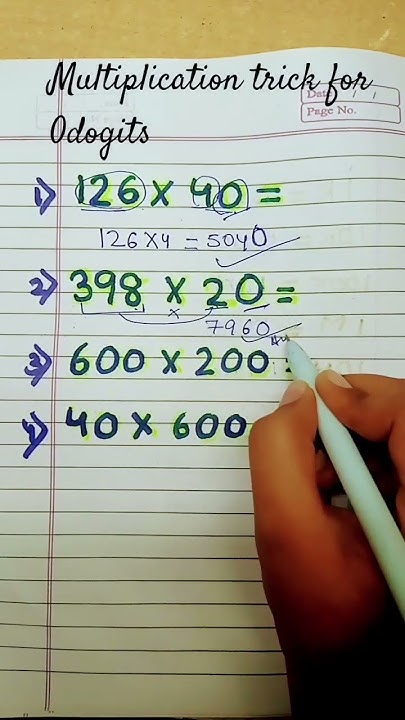 Multiplication trick for
0dogits
Date / /
Page No.
1) 126 x 40 =
126 x 4 = 5040
2) 398 x 20 =
x
7960
3) 600 x 200 =
4) 40 x 600